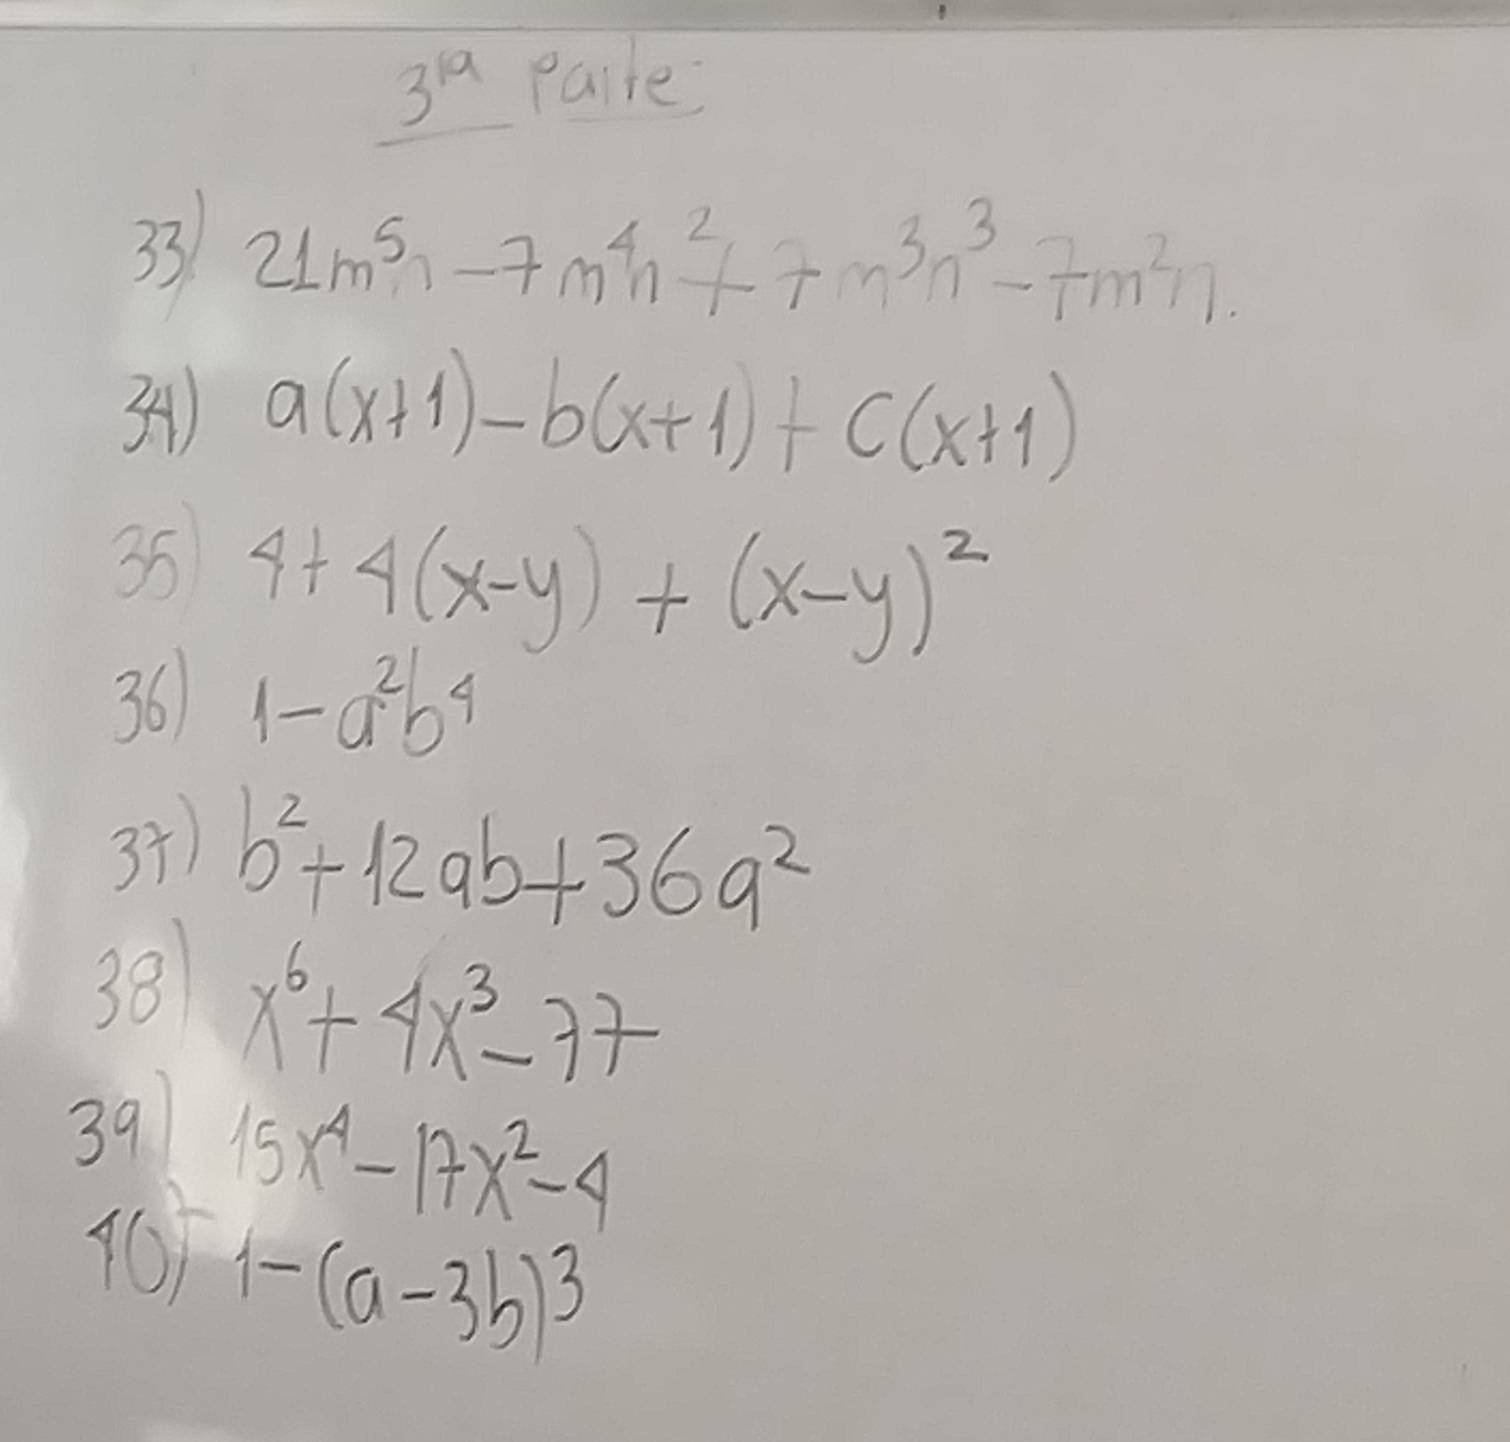 3ra Parte:
33) 21m⁵n - 7m⁴n² + 7m³n³ - 7m²n.
34) a(x+1) - b(x+1) + c(x+1)
35) 4 + 4(x-y) + (x-y)²
36) 1 - a²b⁴
37) b² + 12ab + 36a²
38) x⁶ + 4x³ - 77
39) 15x⁴ - 17x² - 4
40) 1 - (a - 3b)³